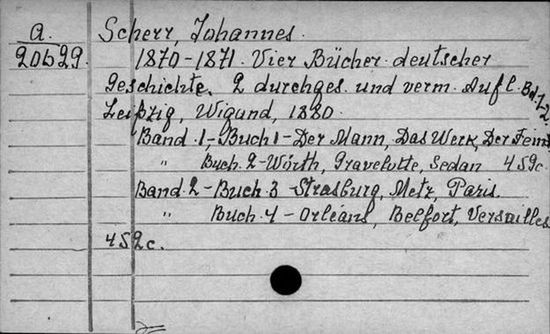 A.
20629.
Scherr, Johannes.
1870-1871. Vier Bücher deutscher
Geschichte. 2 durchges. und verm. Aufl. Bd. 1-2
Leipzig, Wigand, 1880.
Band 1, - Buch 1 - Der Mann, Das Werk, Der Feind
" Buch 2 - Wörth, Gravelotte, Sedan 459c.
Band 2 - Buch 3 - Strasburg, Metz, Paris.
" Buch 4 - Orléans, Belfort, Versailles
452c.